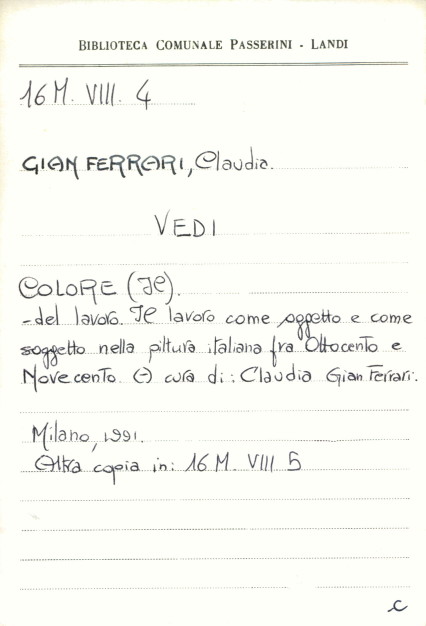 BIBLIOTECA COMUNALE PASSERINI - LANDI
16 M. VIII. 4
GIAN FERRARI, Claudia.
VEDI
COLORE (Il).
- del lavoro. Il lavoro come oggetto e come
soggetto nella pittura italiana fra Ottocento e
Novecento. A cura di: Claudia Gian Ferrari.
Milano, 1991.
Altra copia in: 16 M. VIII 5
C